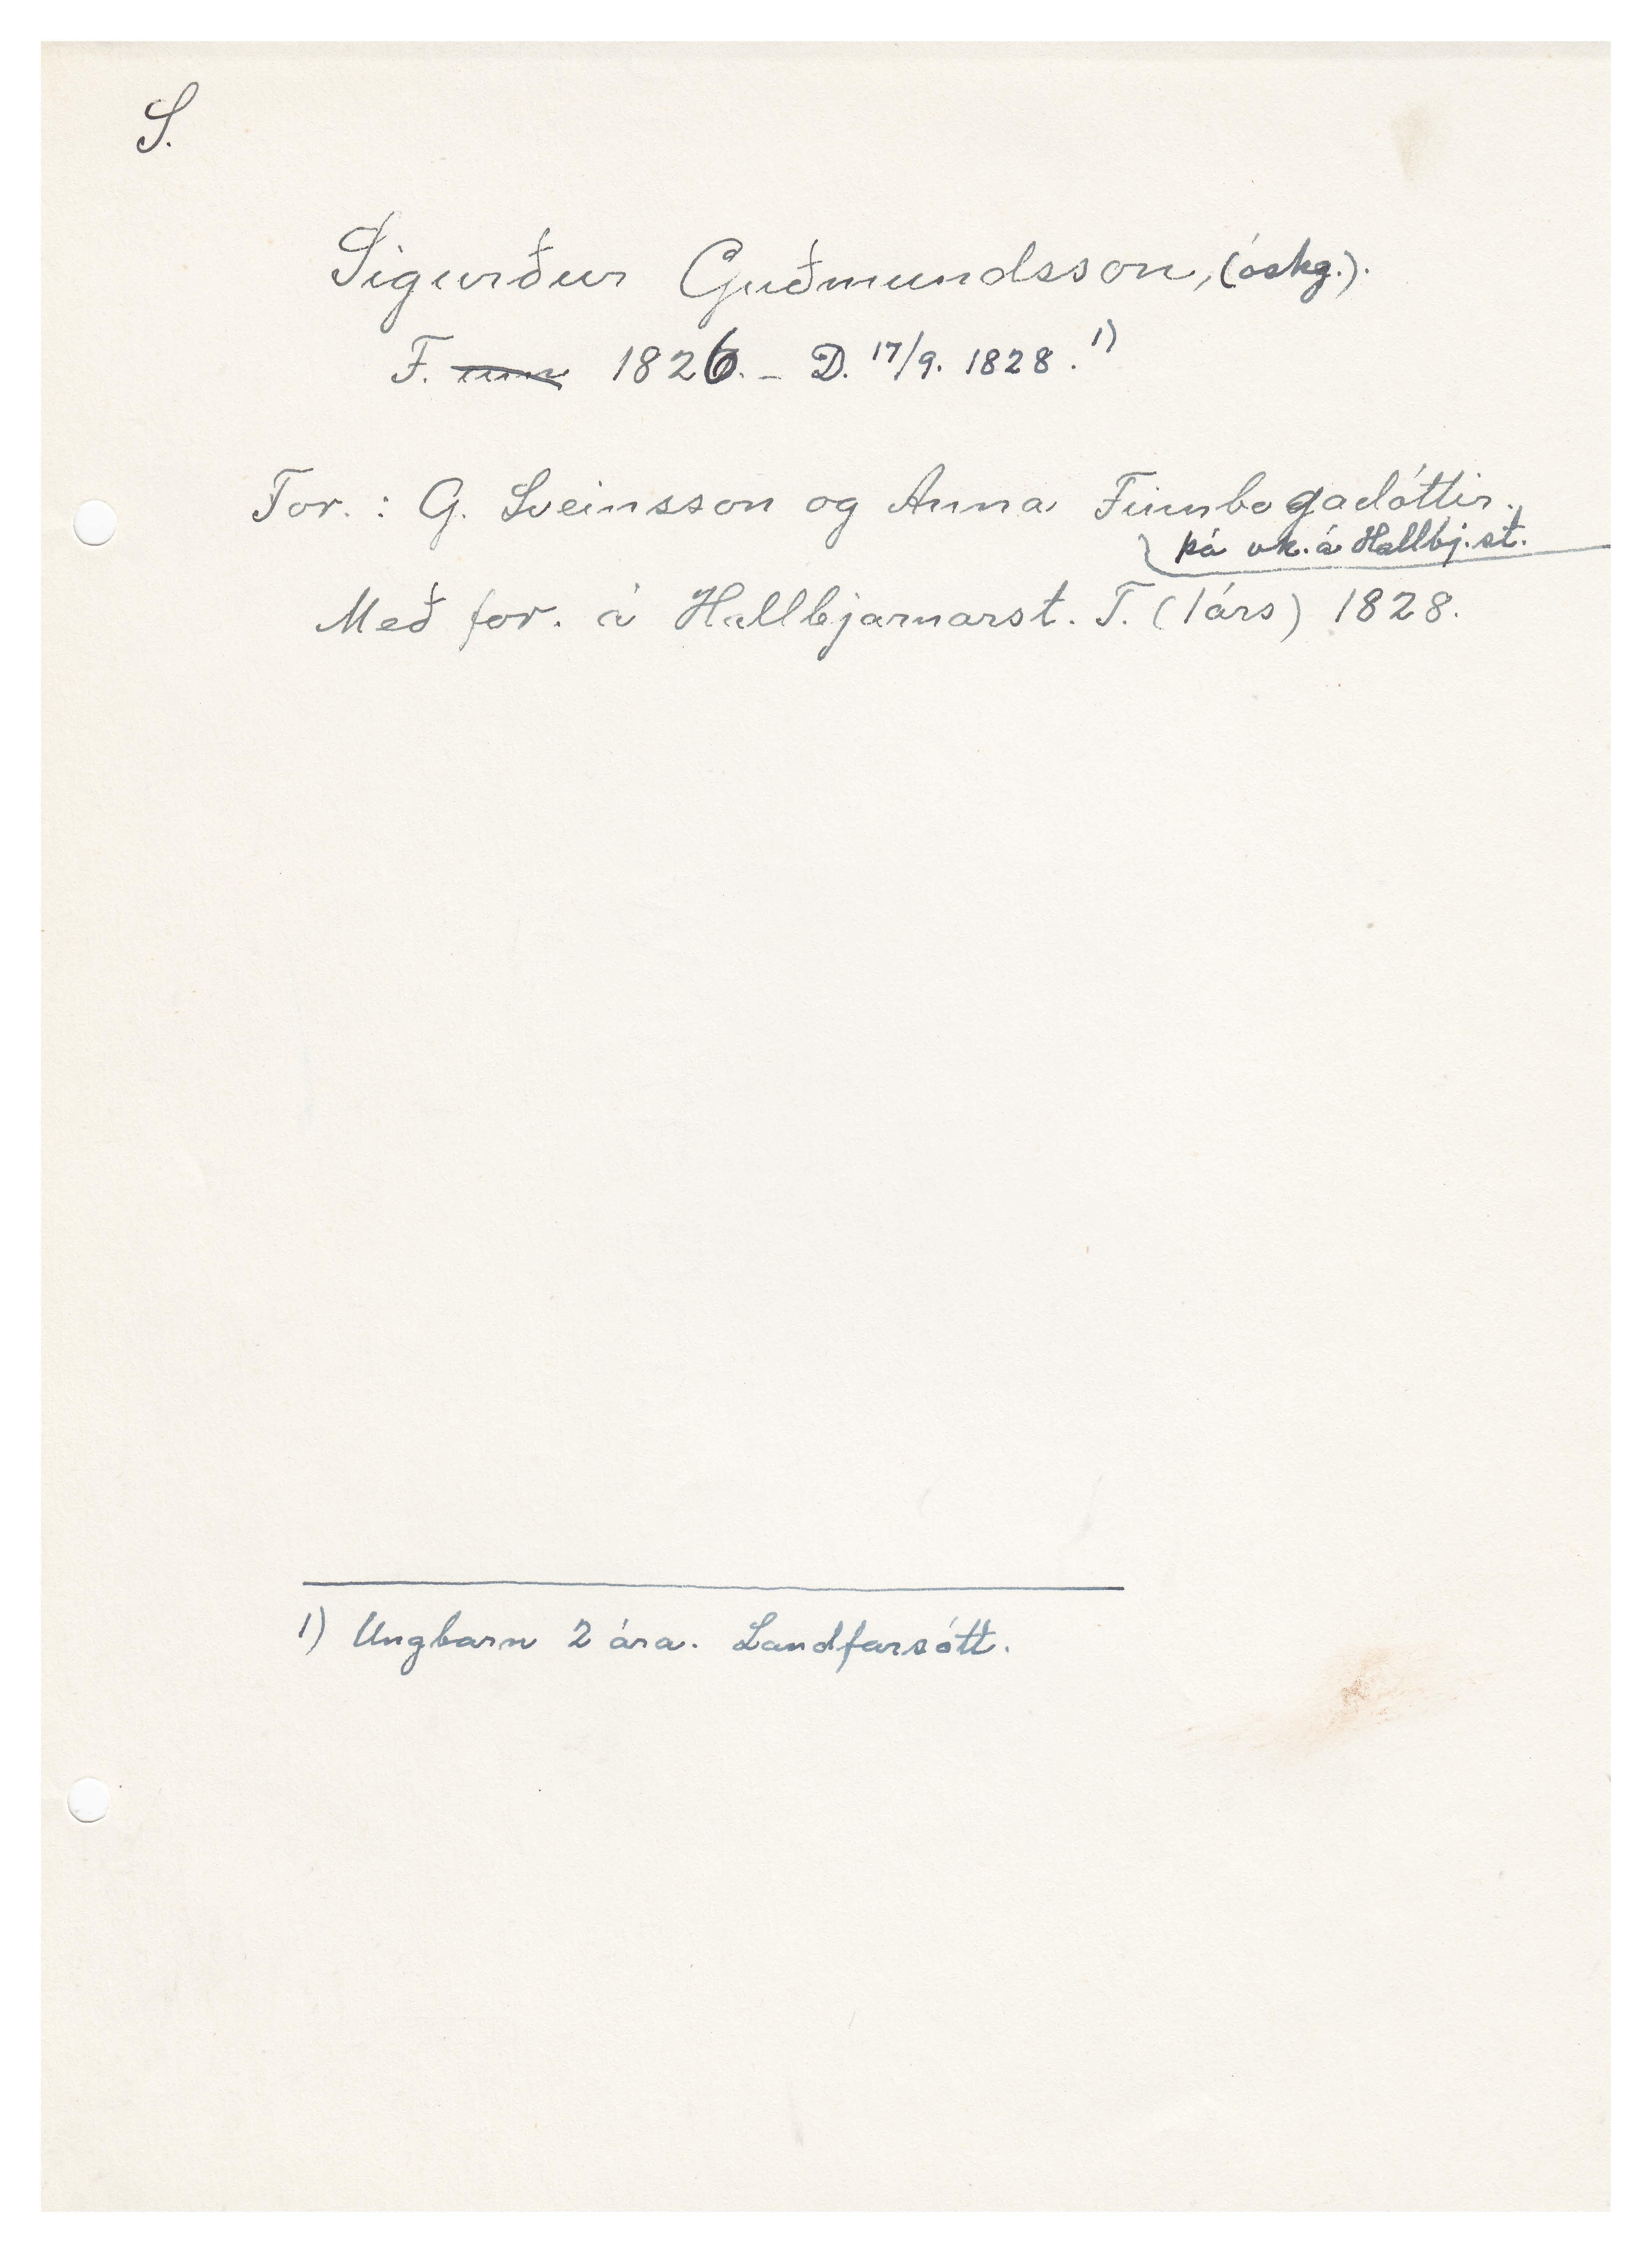 S.
Sigurður Guðmundsson, (óskg.).
F. um 1826. - D. 17/9. 1828. 1)
For.: G. Sveinsson og Anna Finnbogadóttir.
þá vk. á Hallbj.st.
Með for. á Hallbjarnarst. T. (1árs) 1828.
1) Ungbarn 2 ára. Landfarsótt.